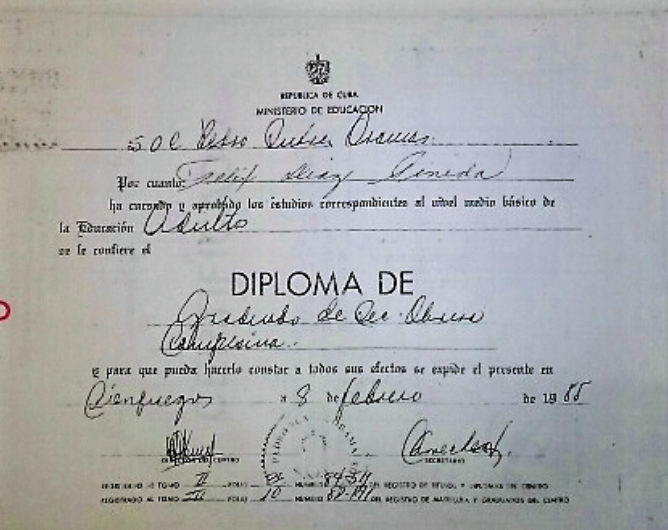 REPUBLICA DE CUBA
MINISTERIO DE EDUCACION
S O C Pedro
Por cuanto: Felix Diaz Pineda
ha cursado y aprobado los estudios correspondientes al nivel medio básico de
la Educación Adulto
se le confiere el
DIPLOMA DE
Graduado de Sec. Obrera
Campesina.
y para que pueda hacerlo constar a todos sus efectos se expide el presente en
Cienfuegos a 8 de febrero de 19
DIRECTOR DEL CENTRO SECRETARIO
TOMO II FOLIO NUMERO DEL REGISTRO DE TITULOS Y DIPLOMAS DEL CENTRO
REGISTRADO AL TOMO III FOLIO 10 NUMERO DEL REGISTRO DE MATRICULA Y GRADUADOS DEL CENTRO